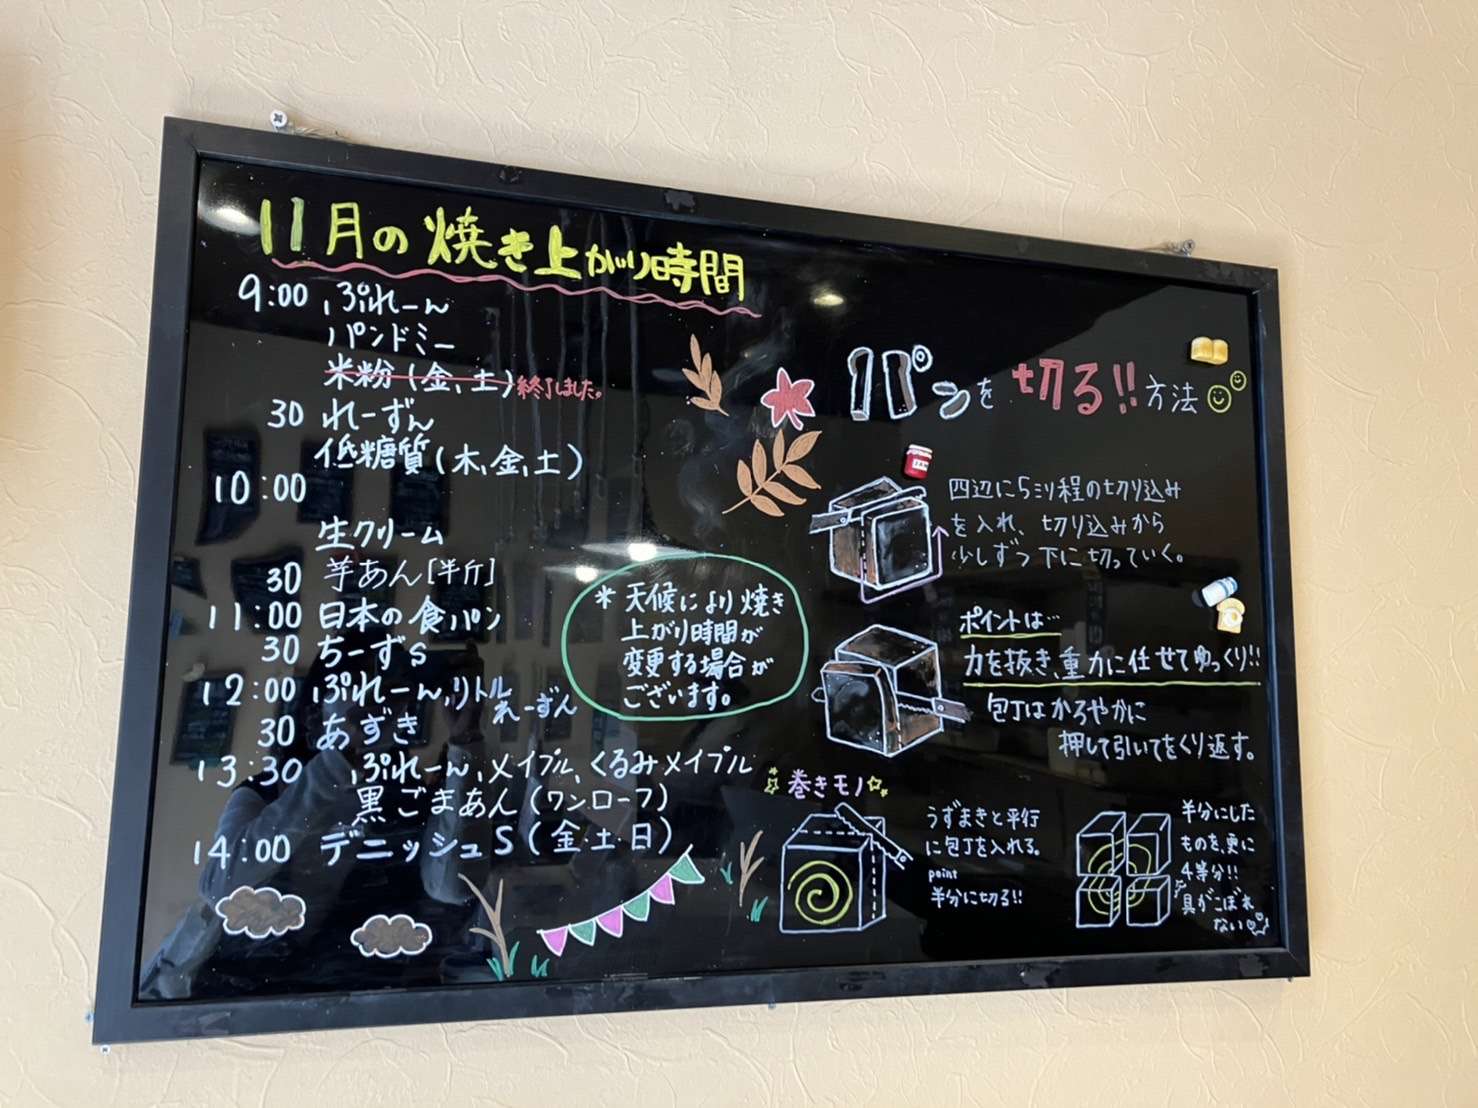 11月の焼き上がり時間
9:00 ぷれーん
パンドミー
米粉(金、土)終了しました。
30 れーずん
低糖質(木、金、土)
10:00
生クリーム
30 芋あん[半斤]
11:00 日本の食パン
30 ちーずs
12:00 ぷれーん、リトルれーずん
30 あずき
13:30 ぷれーん、メイプル、くるみメイプル
黒ごまあん(ワンローフ)
14:00 デニッシュS(金・土・日)
*天候により焼き
上がり時間が
変更する場合が
ございます。
パンを切る!!方法
四辺に5ミリ程の切り込み
を入れ、切り込みから
少しずつ下に切っていく。
ポイントは…
力を抜き、重力に任せてゆっくり!!
包丁はかろやかに
押して引いてをくり返す。
巻きモノ
うずまきと平行
に包丁を入れる。
point
半分に切る!!
半分にした
ものを、更に
4等分!!
具がこぼれ
ない